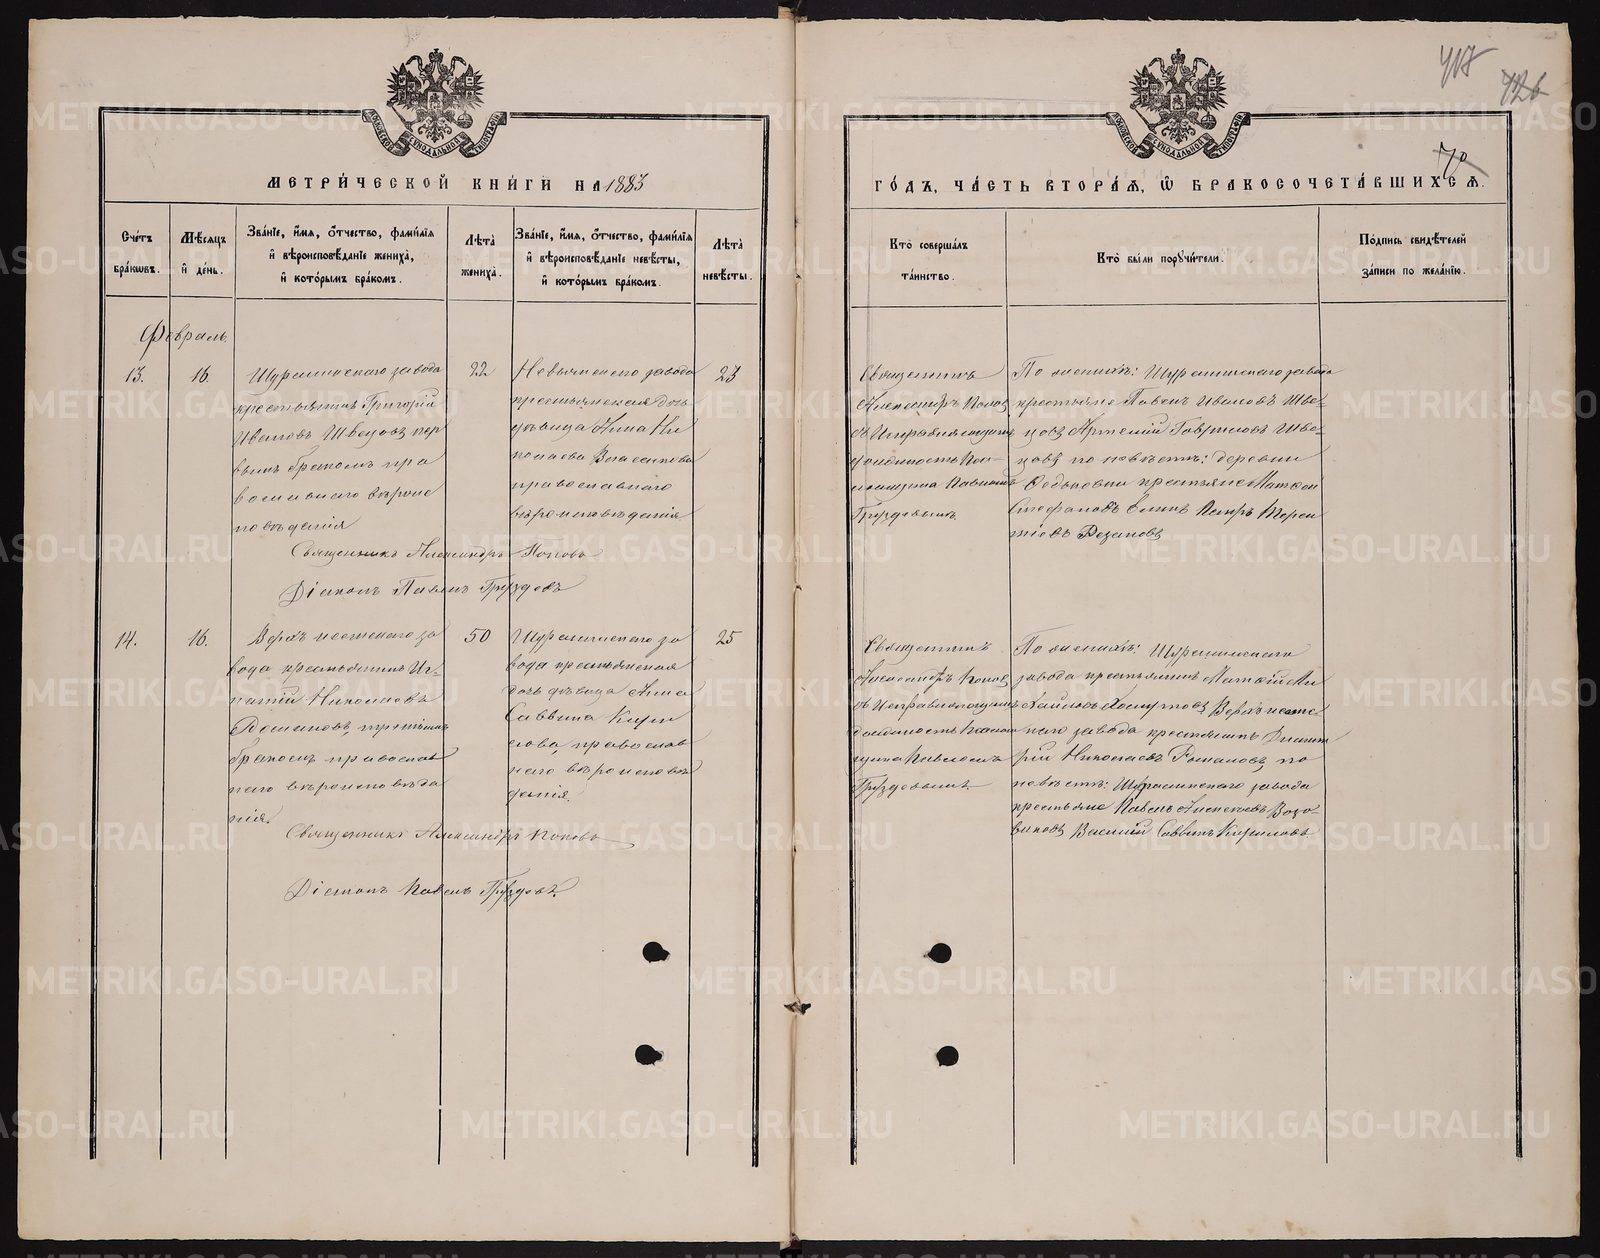 МЕТРИЧЕСКОЙ КНИГИ НА 1883
Счетъ браковъ.
Мѣсяцъ и день.
Званіе, имя, отчество, фамилія и вѣроисповѣданіе жениха, и которымъ бракомъ.
Лѣта жениха.
Званіе, имя, отчество, фамилія и вѣроисповѣданіе невѣсты, и которымъ бракомъ.
Лѣта невѣсты.
Февраль
13.
16.
Шуралинскаго завода
крестьянинъ Григорій
Ивановъ Швецовъ пер
вымъ бракомъ пра
вославнаго вѣроис
повѣданія
22
Невьянскаго завода
крестьянская дочь
дѣвица Анна Ни
колаева Власикова
православнаго
вѣроисповѣданія
23
Священникъ Александръ Поповъ
Діаконъ Павелъ Груздевъ
14.
16.
Верхъ нейвскаго за
вода крестьянинъ Иг-
натій Николаевъ
Романовъ, третьимъ
бракомъ православ
наго вѣроисповѣда
нія.
50
Шуралинскаго за
вода крестьянская
дочь дѣвица Анна
Саввина Кири
лова, православ
наго вѣроисповѣ
данія.
25
Священникъ Александръ Поповъ
Діаконъ Павелъ Груздевъ.
МОСКОВСКОЙ СУНОДАЛЬНОЙ ТИПОГРАФІИ
ГОДЪ, ЧАСТЬ ВТОРАЯ, Ѡ БРАКОСОЧЕТАВШИХСЯ.
Кто совершалъ таинство.
Кто были поручители.
Подпись свидѣтелей записи по желанію.
Священникъ
Александръ Попов
съ Исправляющимъ
должность Пса-
ломщика Павломъ
Груздевымъ.
По женихѣ: Шуралинскаго завода
крестьяне Павелъ Ивановъ Шве-
цовъ Артемій Гавриловъ Шве-
цовъ по невѣстѣ: деревни
Ѳедьковки крестьяне Матвей
Стефановъ Петръ Терен
тіевъ Резановъ
Священникъ
Александръ Попов
съ Исправляющимъ
должность Псалом
щика Павломъ
Груздевымъ
По женихѣ: Шуралинскаго
завода крестьянинъ Матвей Ми
хайловъ Хомутовъ, Верхънейвс
каго завода крестьянинъ Димит
рій Николаевъ Романовъ, по
невѣстѣ: Шуралинскаго завода
крестьяне Павелъ Алексеевъ Возо-
виковъ Василій Саввинъ Кириловъ.